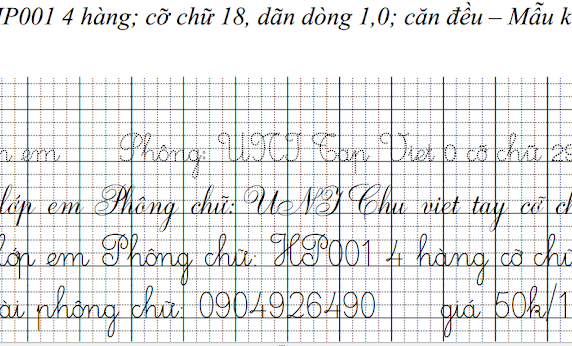 IP001 4 hàng; cỡ chữ 18, dãn dòng 1,0; căn đều – Mẫu k
n em Phông: UNI Tap Viet 0 cỡ chữ 29
lớp em Phông chữ: UNI Chu viet tay cỡ ch
lớp em Phông chữ: HP001 4 hàng cỡ chữ
ài phông chữ: 0904926490 giá 50k/1